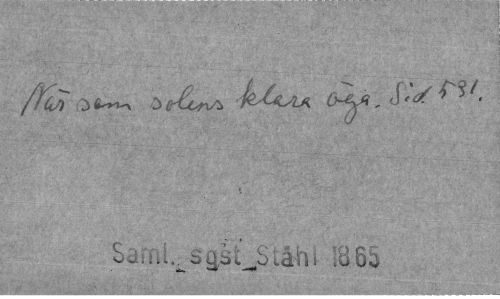 När som solens klara öga. Sid. 591.
Saml. sgst Ståhl 1865